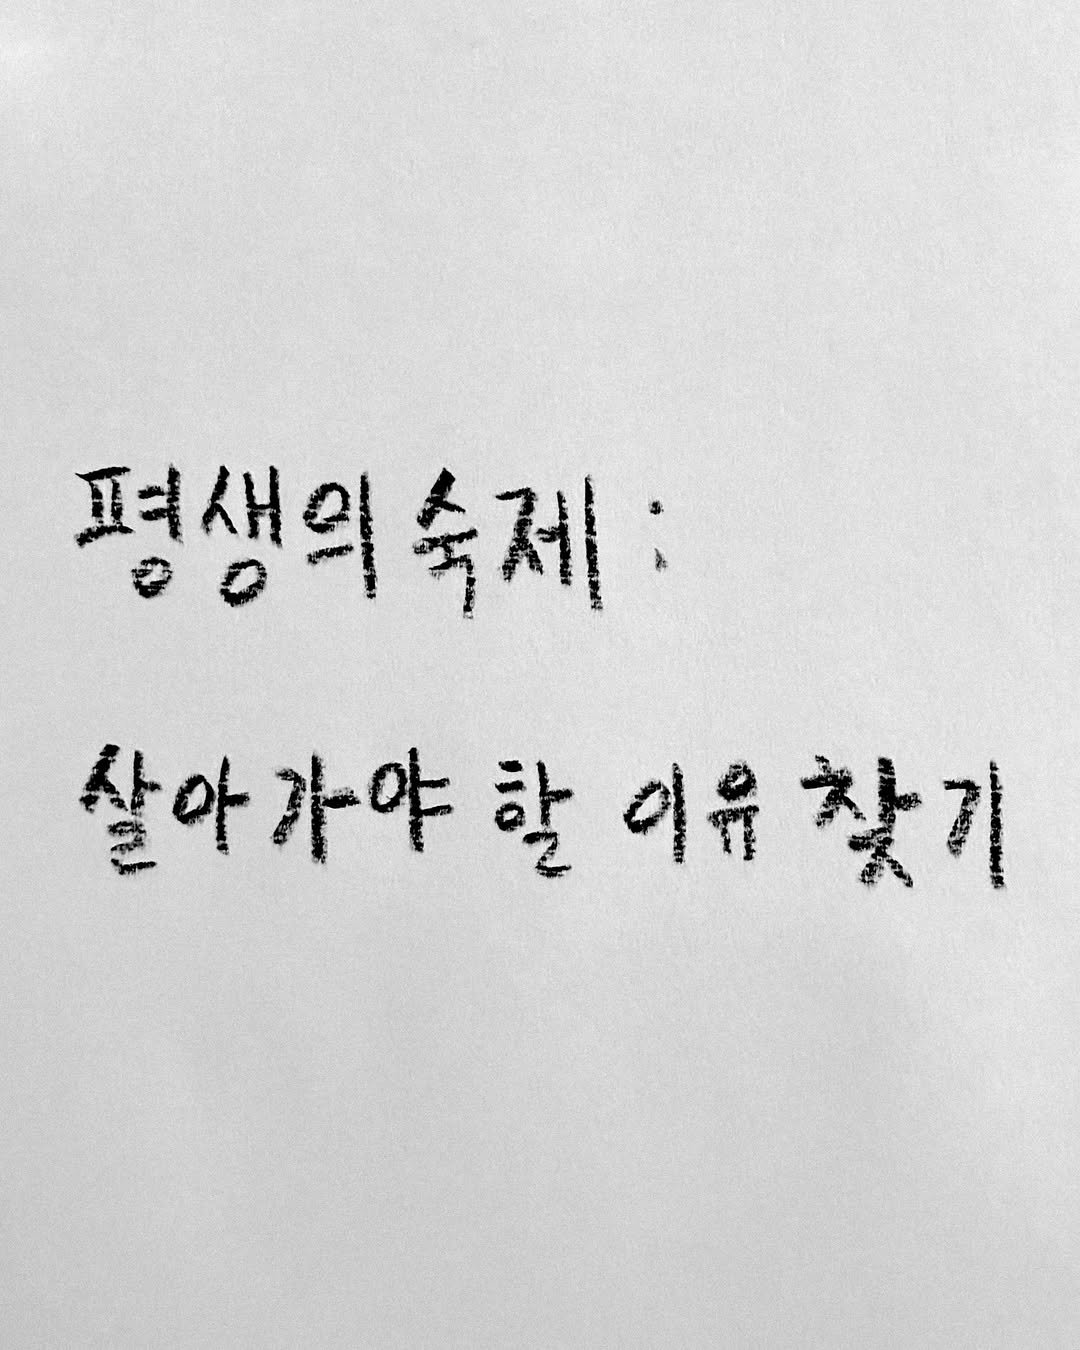 평생의 숙제 :
살아가야 할 이유 찾기